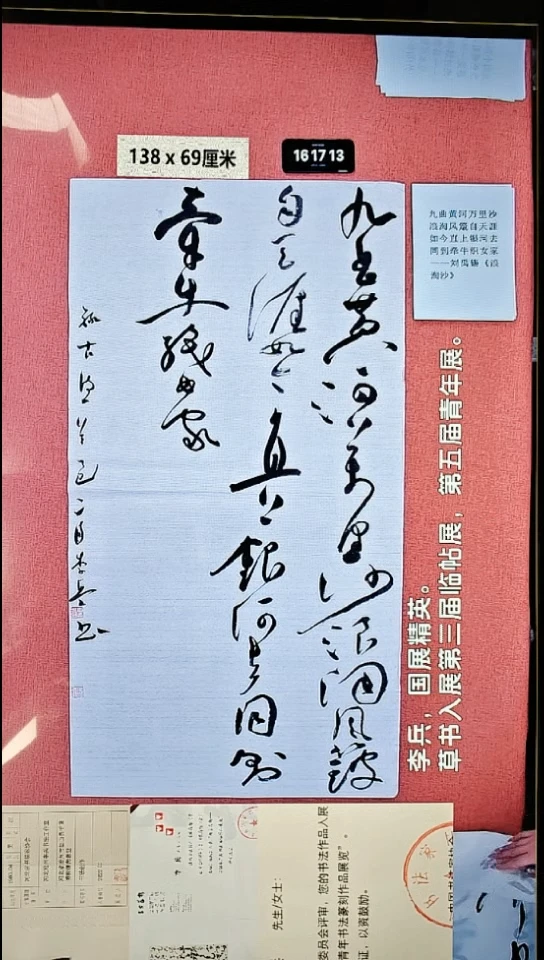 138 x 69厘米
16 17 13
九曲黄河萬里沙浪淘風簸
自天涯如今直上銀河去同到
牽牛織女家
李兵书
九曲黄河万里沙
浪淘风簸自天涯
如今直上银河去
同到牵牛织女家
——刘禹锡《浪
淘沙》
李兵，国展精英。
草书入展第三届临帖展，第五届青年展。
先生/女士：
委员会评审，您的书法作品入展
青年书法篆刻作品展览”。
证，以资鼓励。